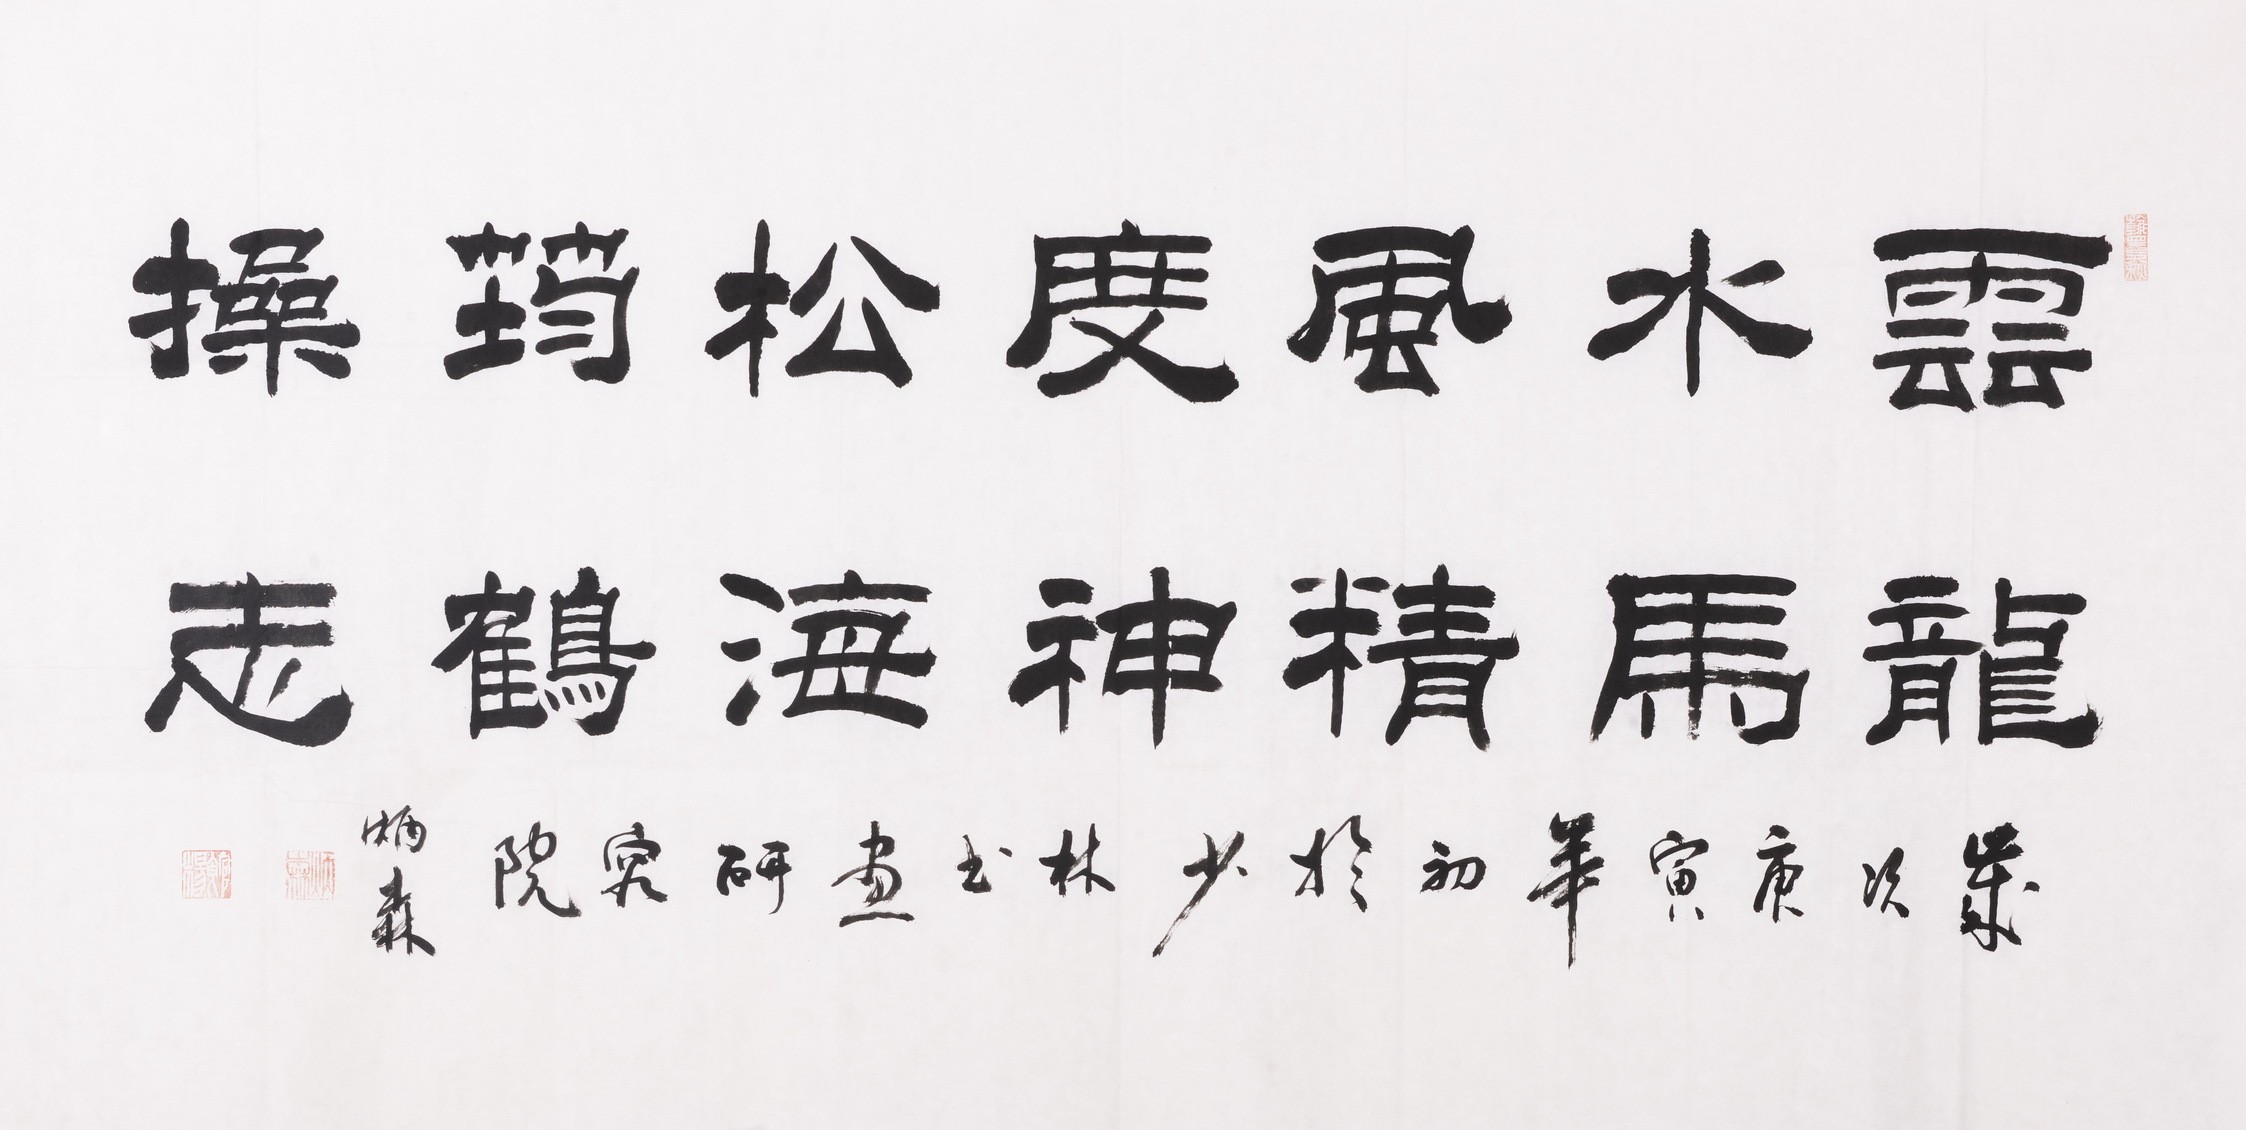 雲水風度松筠操
龍馬精神海鶴志
歲次庚寅年初於少林书畫研究院
炳森